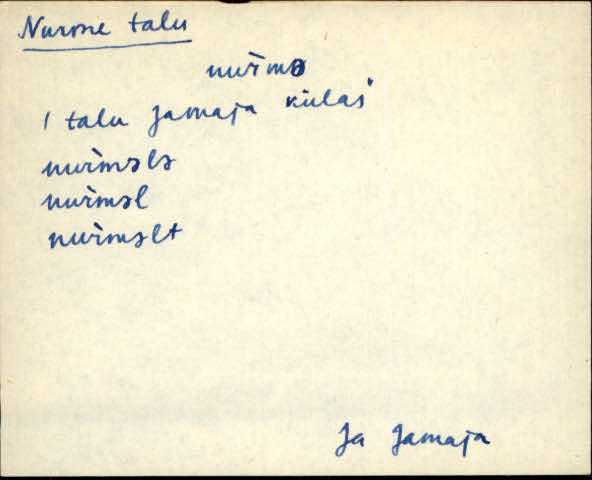 Nurme talu
nur̀mə
1 talu Jamaja külas
nur̀mələ
nur̀məl
nur̀məlt
Ja Jamaja